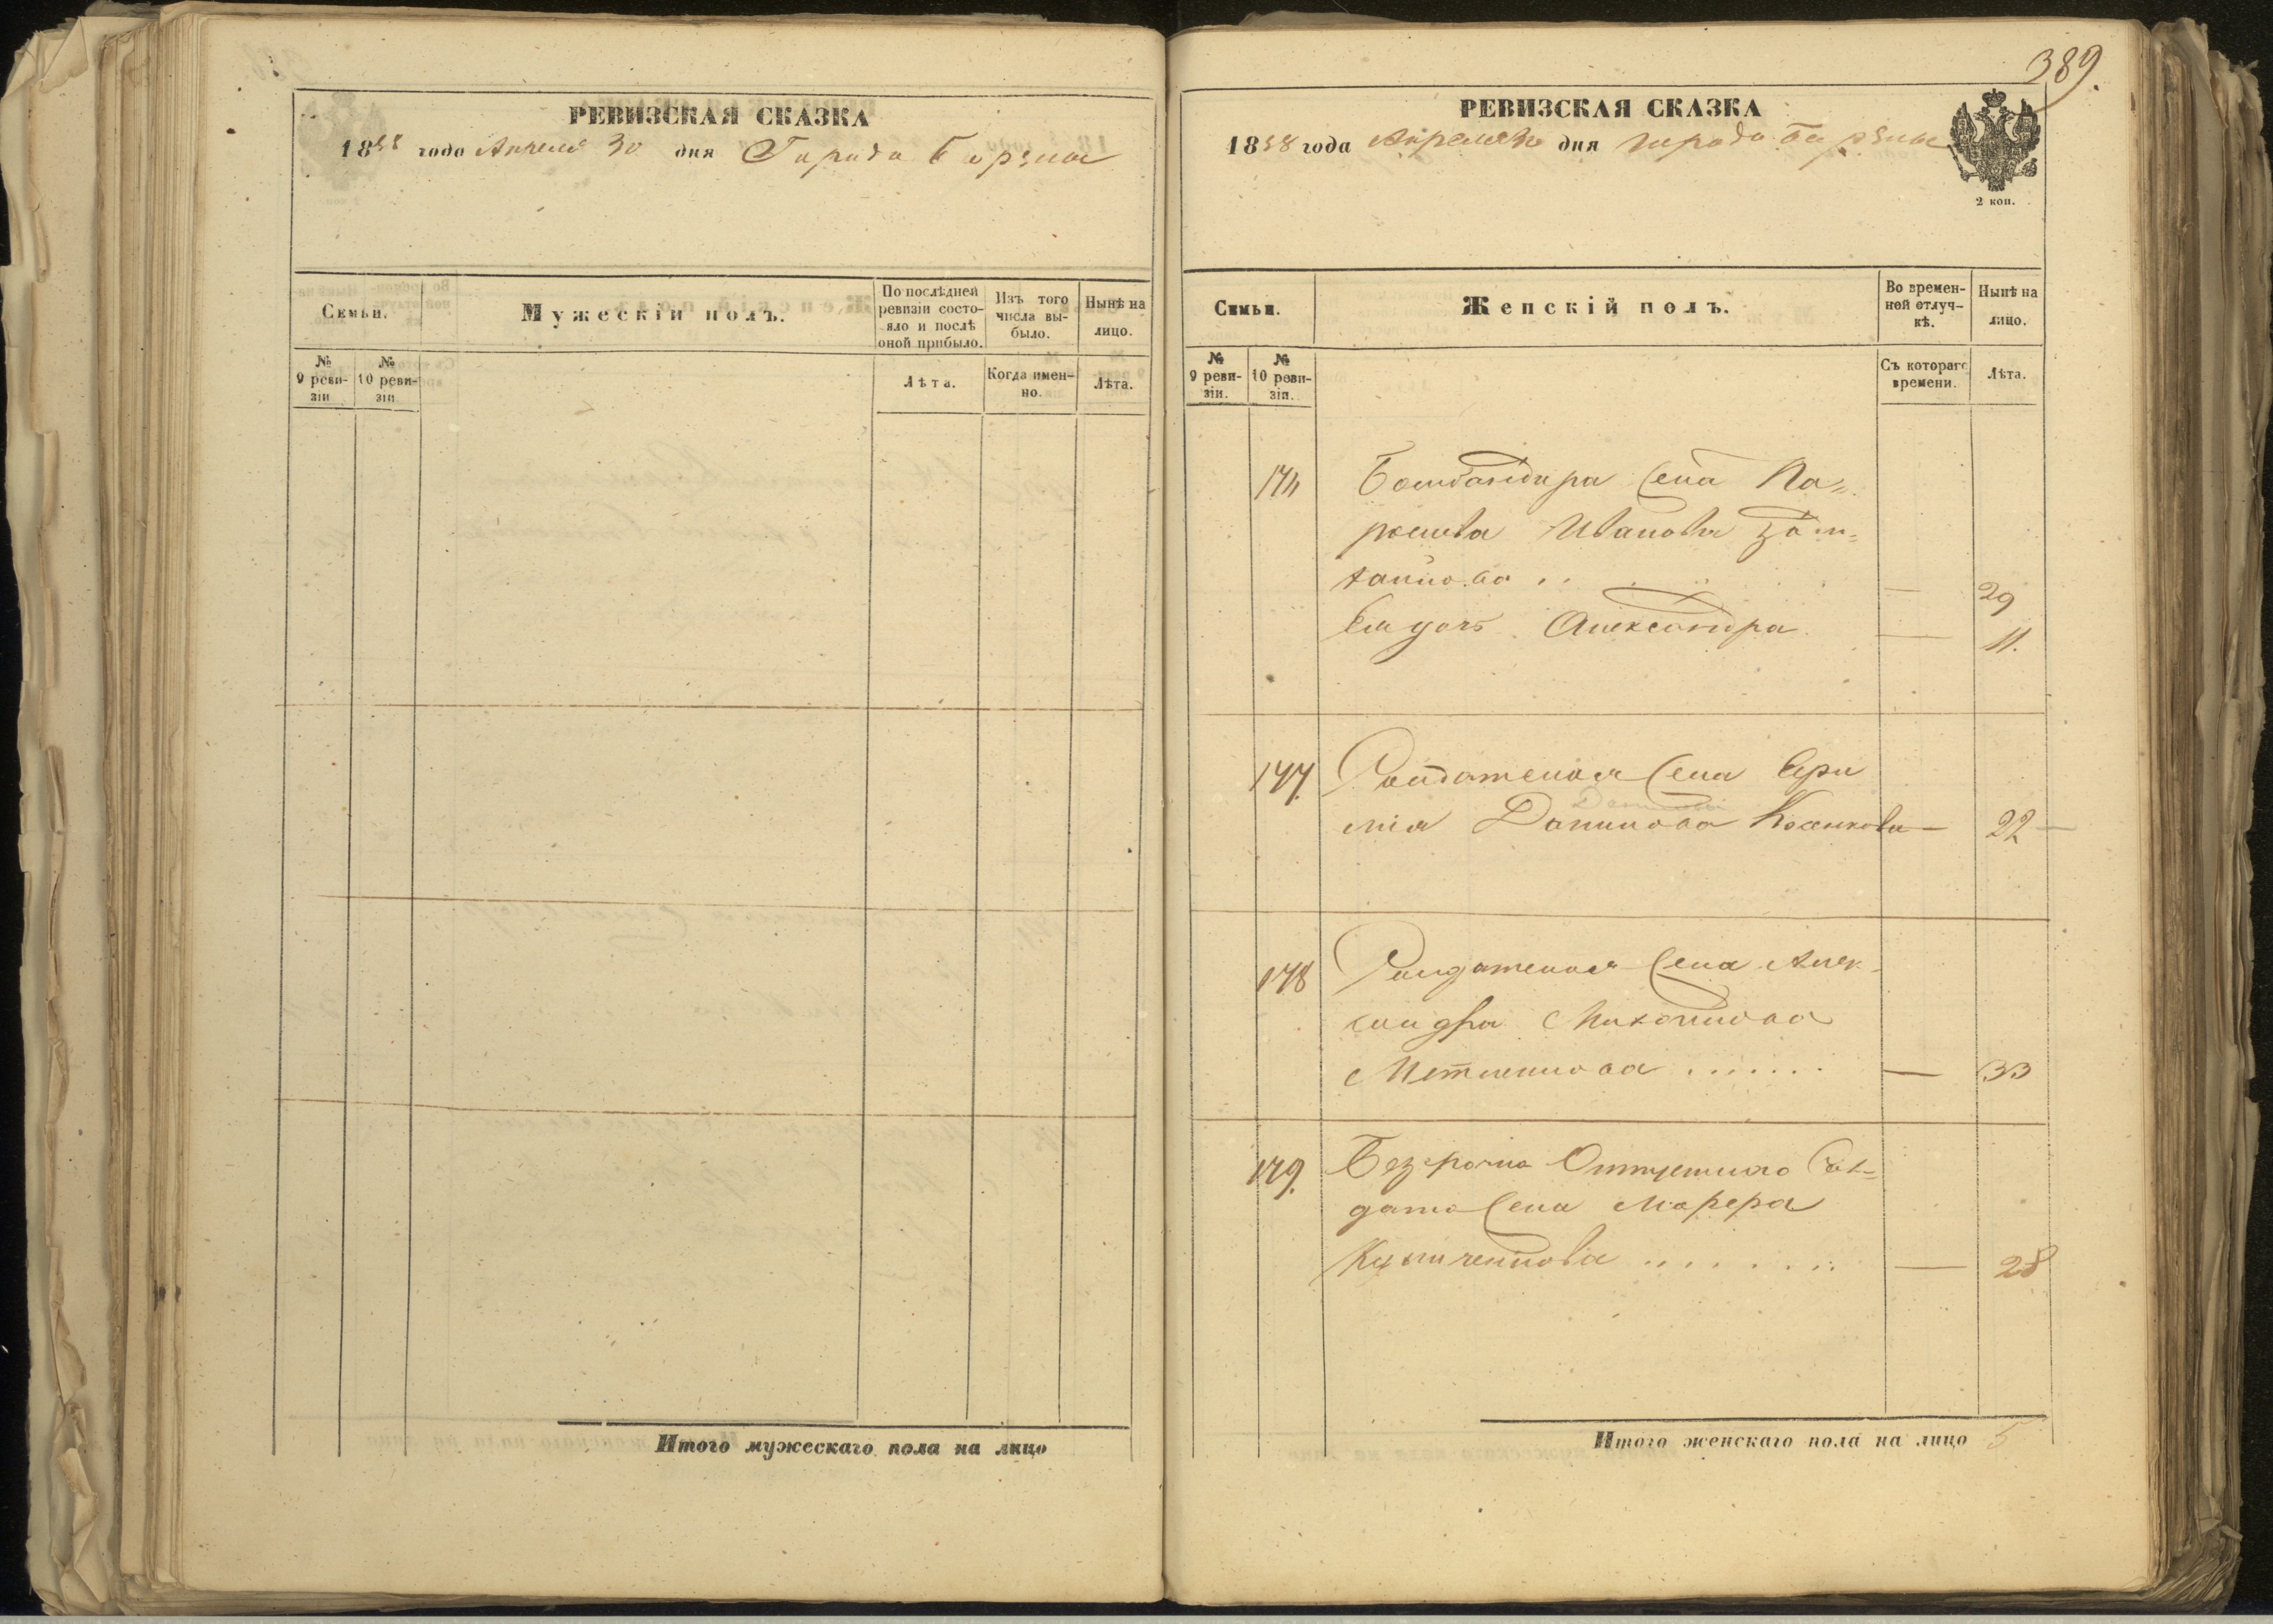 РЕВИЗСКАЯ СКАЗКА
1858 года Апреля 30 дня Города Борзны
Семьи.
Мужескій полъ.
По послѣдней ревизіи состояло и послѣ оной прибыло.
Изъ того числа выбыло.
Нынѣ на лицо.
№ 9 ревизіи
№ 10 ревизіи
Лѣта.
Когда именно.
Лѣта.
Итого мужескаго пола на лицо
389.
РЕВИЗСКАЯ СКАЗКА
1858 года Апреля 30 дня города Борзны
2 коп.
Семьи.
Женскій полъ.
Во временной отлучкѣ.
Нынѣ на лицо.
№ 9 ревизіи.
№ 10 ревизіи.
Съ котораго времени.
Лѣта.
Бомбандира жена Па-
Иванова
29
Ея дочь Александра — 11.
177. Солдатская жена Ефи
мія Данилова — 22
178 Солдатская жена Алек-
сандра Михайлова
— 33
179. Безсрочно Отпускного Сол-
дата жена
— 28
Итого женскаго пола на лицо 5